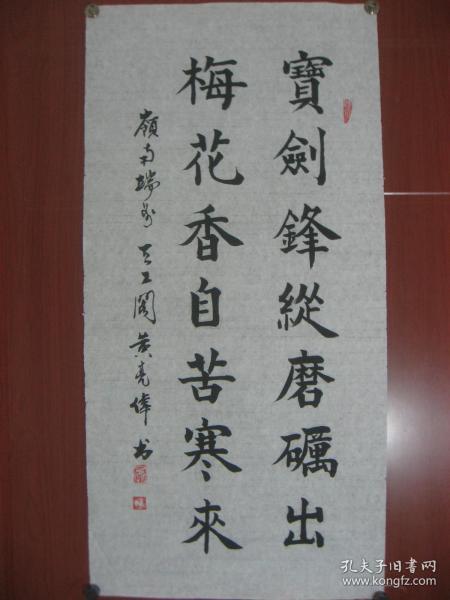 寶劍鋒從磨礪出
梅花香自苦寒來
嶺南端州 天工閣 黄亮偉书
孔夫子旧书网
www.kongfz.com